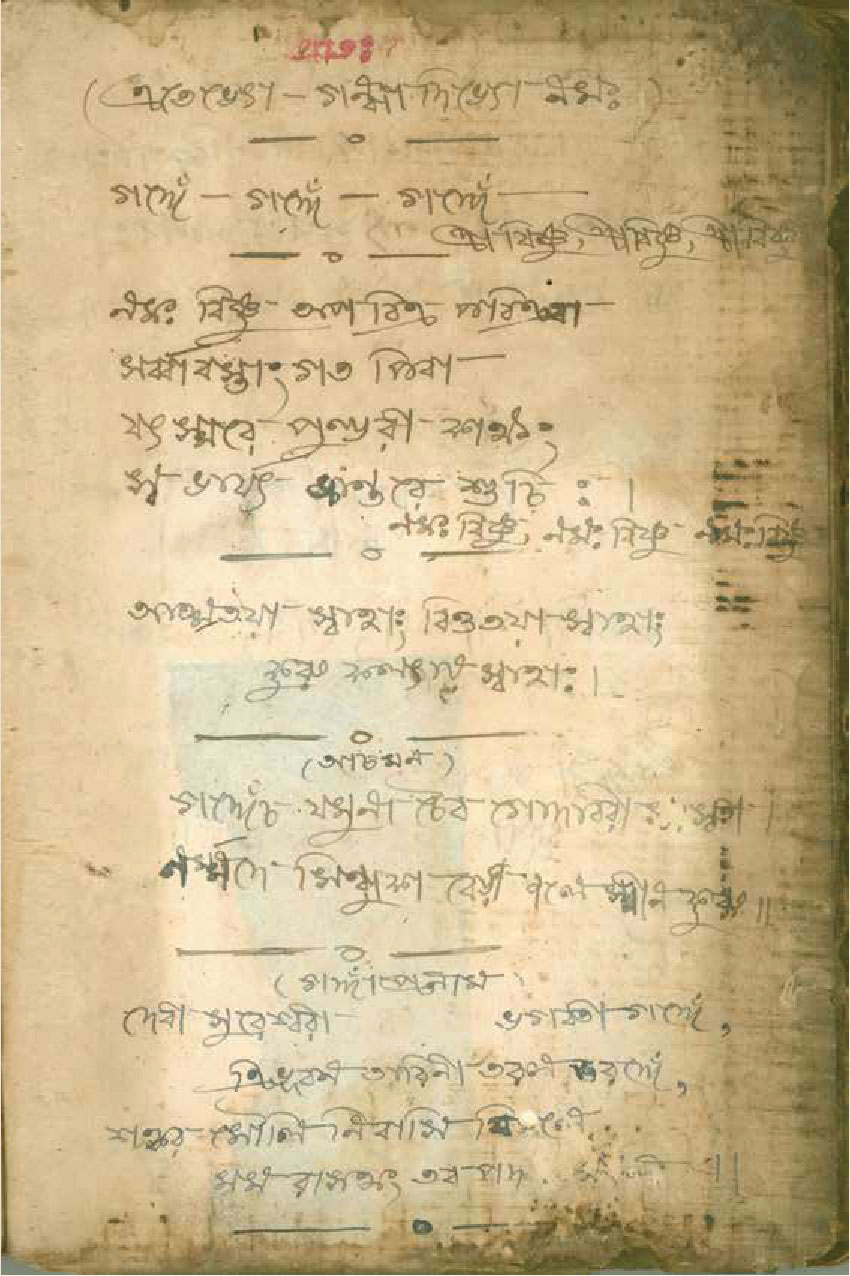 (এতেভ্যো - গন্ধা দিভ্যো নমঃ)
গঙ্গেঁ - গঙ্গেঁ - গঙ্গেঁ
বিষ্ণু, বিষ্ণু, বিষ্ণু
নমঃ বিষ্ণু অপবিত্র পবিত্রবা
সর্ব্বাবস্তাং গত পিবা
যৎ স্মরে পুণ্ডরী কাক্ষং
স্ব ভায্যৎ ভ্যন্তরে শুচি : ।
নমঃ বিষ্ণু, নমঃ বিষ্ণু নমঃ বিষ্ণু
আত্মতয়া স্বাহাঃ বিত্ততয়া স্বাহাঃ
স্বাহাঃ।
(আচমন)
গঙ্গেঁচ যমুনা চৈব গোদাবরী
নর্ম্মদে সিন্ধু কা বেরী জলে স্মীন কুরু ॥
(গঙ্গাঁ প্রনাম
দেবী সুরেশ্বরী ভগবতী গঙ্গেঁ,
ত্রিভুবন তারিনী তরল তরঙ্গেঁ,
শঙ্কর মৌলি নিবাসি
মম তব পাদ